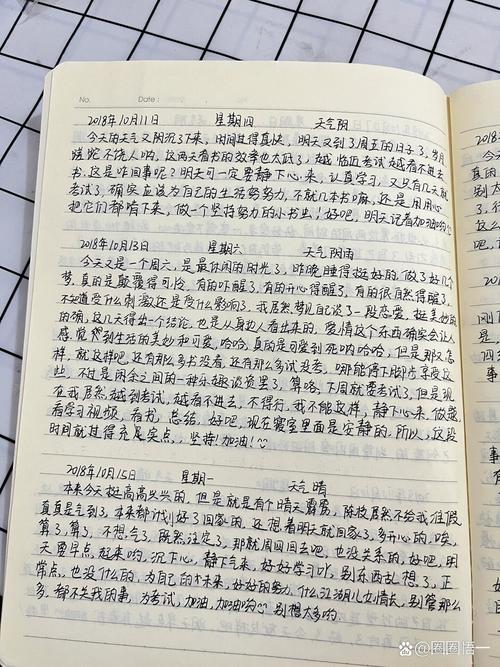 No.
Date:
2018年10月11日 星期四 天气阴
今天的天气又阴沉了下来,时间过得真快,明天又到了周五的日子了,岁月
蹉跎不饶人呐,这两天看书的效率也太低了,越临近考试越看不进去
书,这是咋回事呢?明天可一定要静下心来,认真学习,又只有几天就
考试了,确实应该为自己的生活努努力,不就几本书嘛,还是用用心
把它们都啃下来,做一个坚持努力的小书虫!好吧,明天记着加油哟
2018年10月13日 星期六 天气阴雨
今天又是一个周六,是最休闲的时光了,昨晚睡得挺好的,做了好几个
梦,真的是颠覆得可怜,有的吓醒了,有的开心得醒了,有的很自然得醒了,
不知道受什么刺激还是受什么影响了,我居然梦见自己谈了一段恋爱,挺美妙
的确,这几天得出一个结论,也是从身边人看出来的,爱情这个东西确实会让人
感觉到生活的美妙和可爱,哈哈,真的是可爱到死呐哈哈,但是那又怎
样,就这样吧,还有那么多书没看,还有那么多试没考,哪能停下脚步享受这
些,不过是闲余之间的一种乐趣谈资罢了,算咯,下周就要考试了,但是现
在我居然越到考试,越看不进去,不得行,我不能这样,静下心来,做题,
看学习视频,看书,总结,好吧,现在寝室里面是安静的,所以,这段
时间就过得充尾实点,坚持!加油!
2018年10月15日 星期一 天气晴
本来今天挺高高兴兴的,但是就是有个晴天霹雳,陈技居然不给我准假
真真是气到了,本来都计划好了回家的,还想着明天就回家了,多开心的,唉,
算了,算了,不想,气了,既然注定了,那就周四回去吧,也没关系的,好吧,明
天要早点起来哟,沉下心,静下气来,好好学习吖,别东西乱想了,正
常点,也没什么的,为自己的未来,好好的努力,什么江湖儿女情长,别管那么
多,都不关我的事,为考试,加油,加油哟 别想太多哟.
圈圈悟一